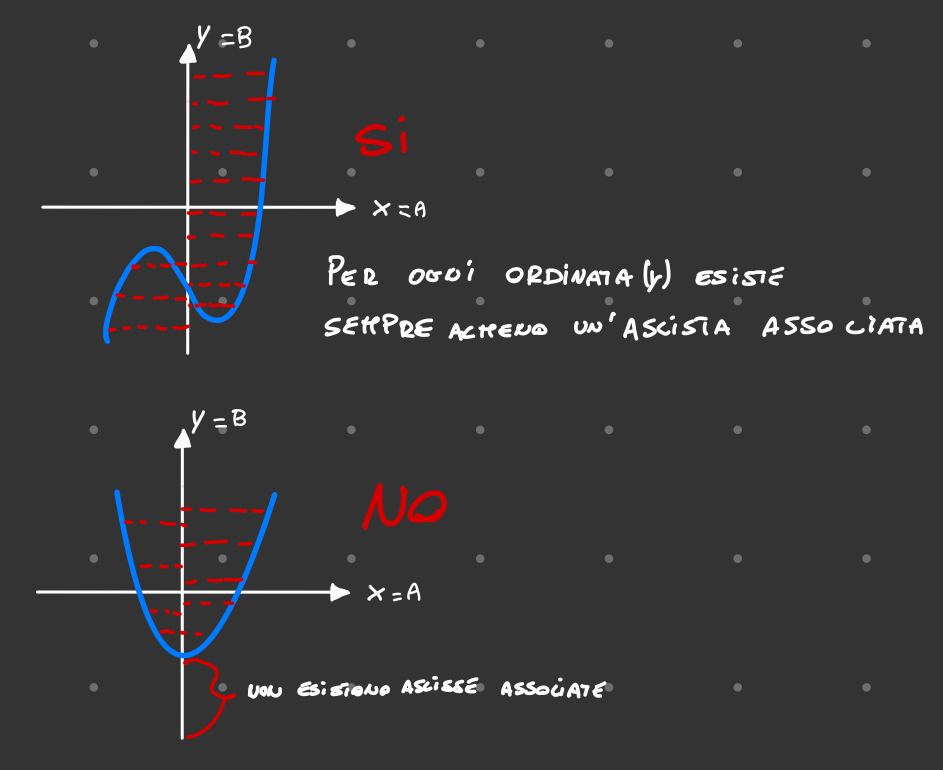 Y = B
SI
X = A
PER OGNI ORDINATA (y) ESISTE
SEMPRE ALMENO UN' ASCISTA ASSOCIATA
Y = B
NO
X = A
NON ESISTONO ASCISSE ASSOCIATE